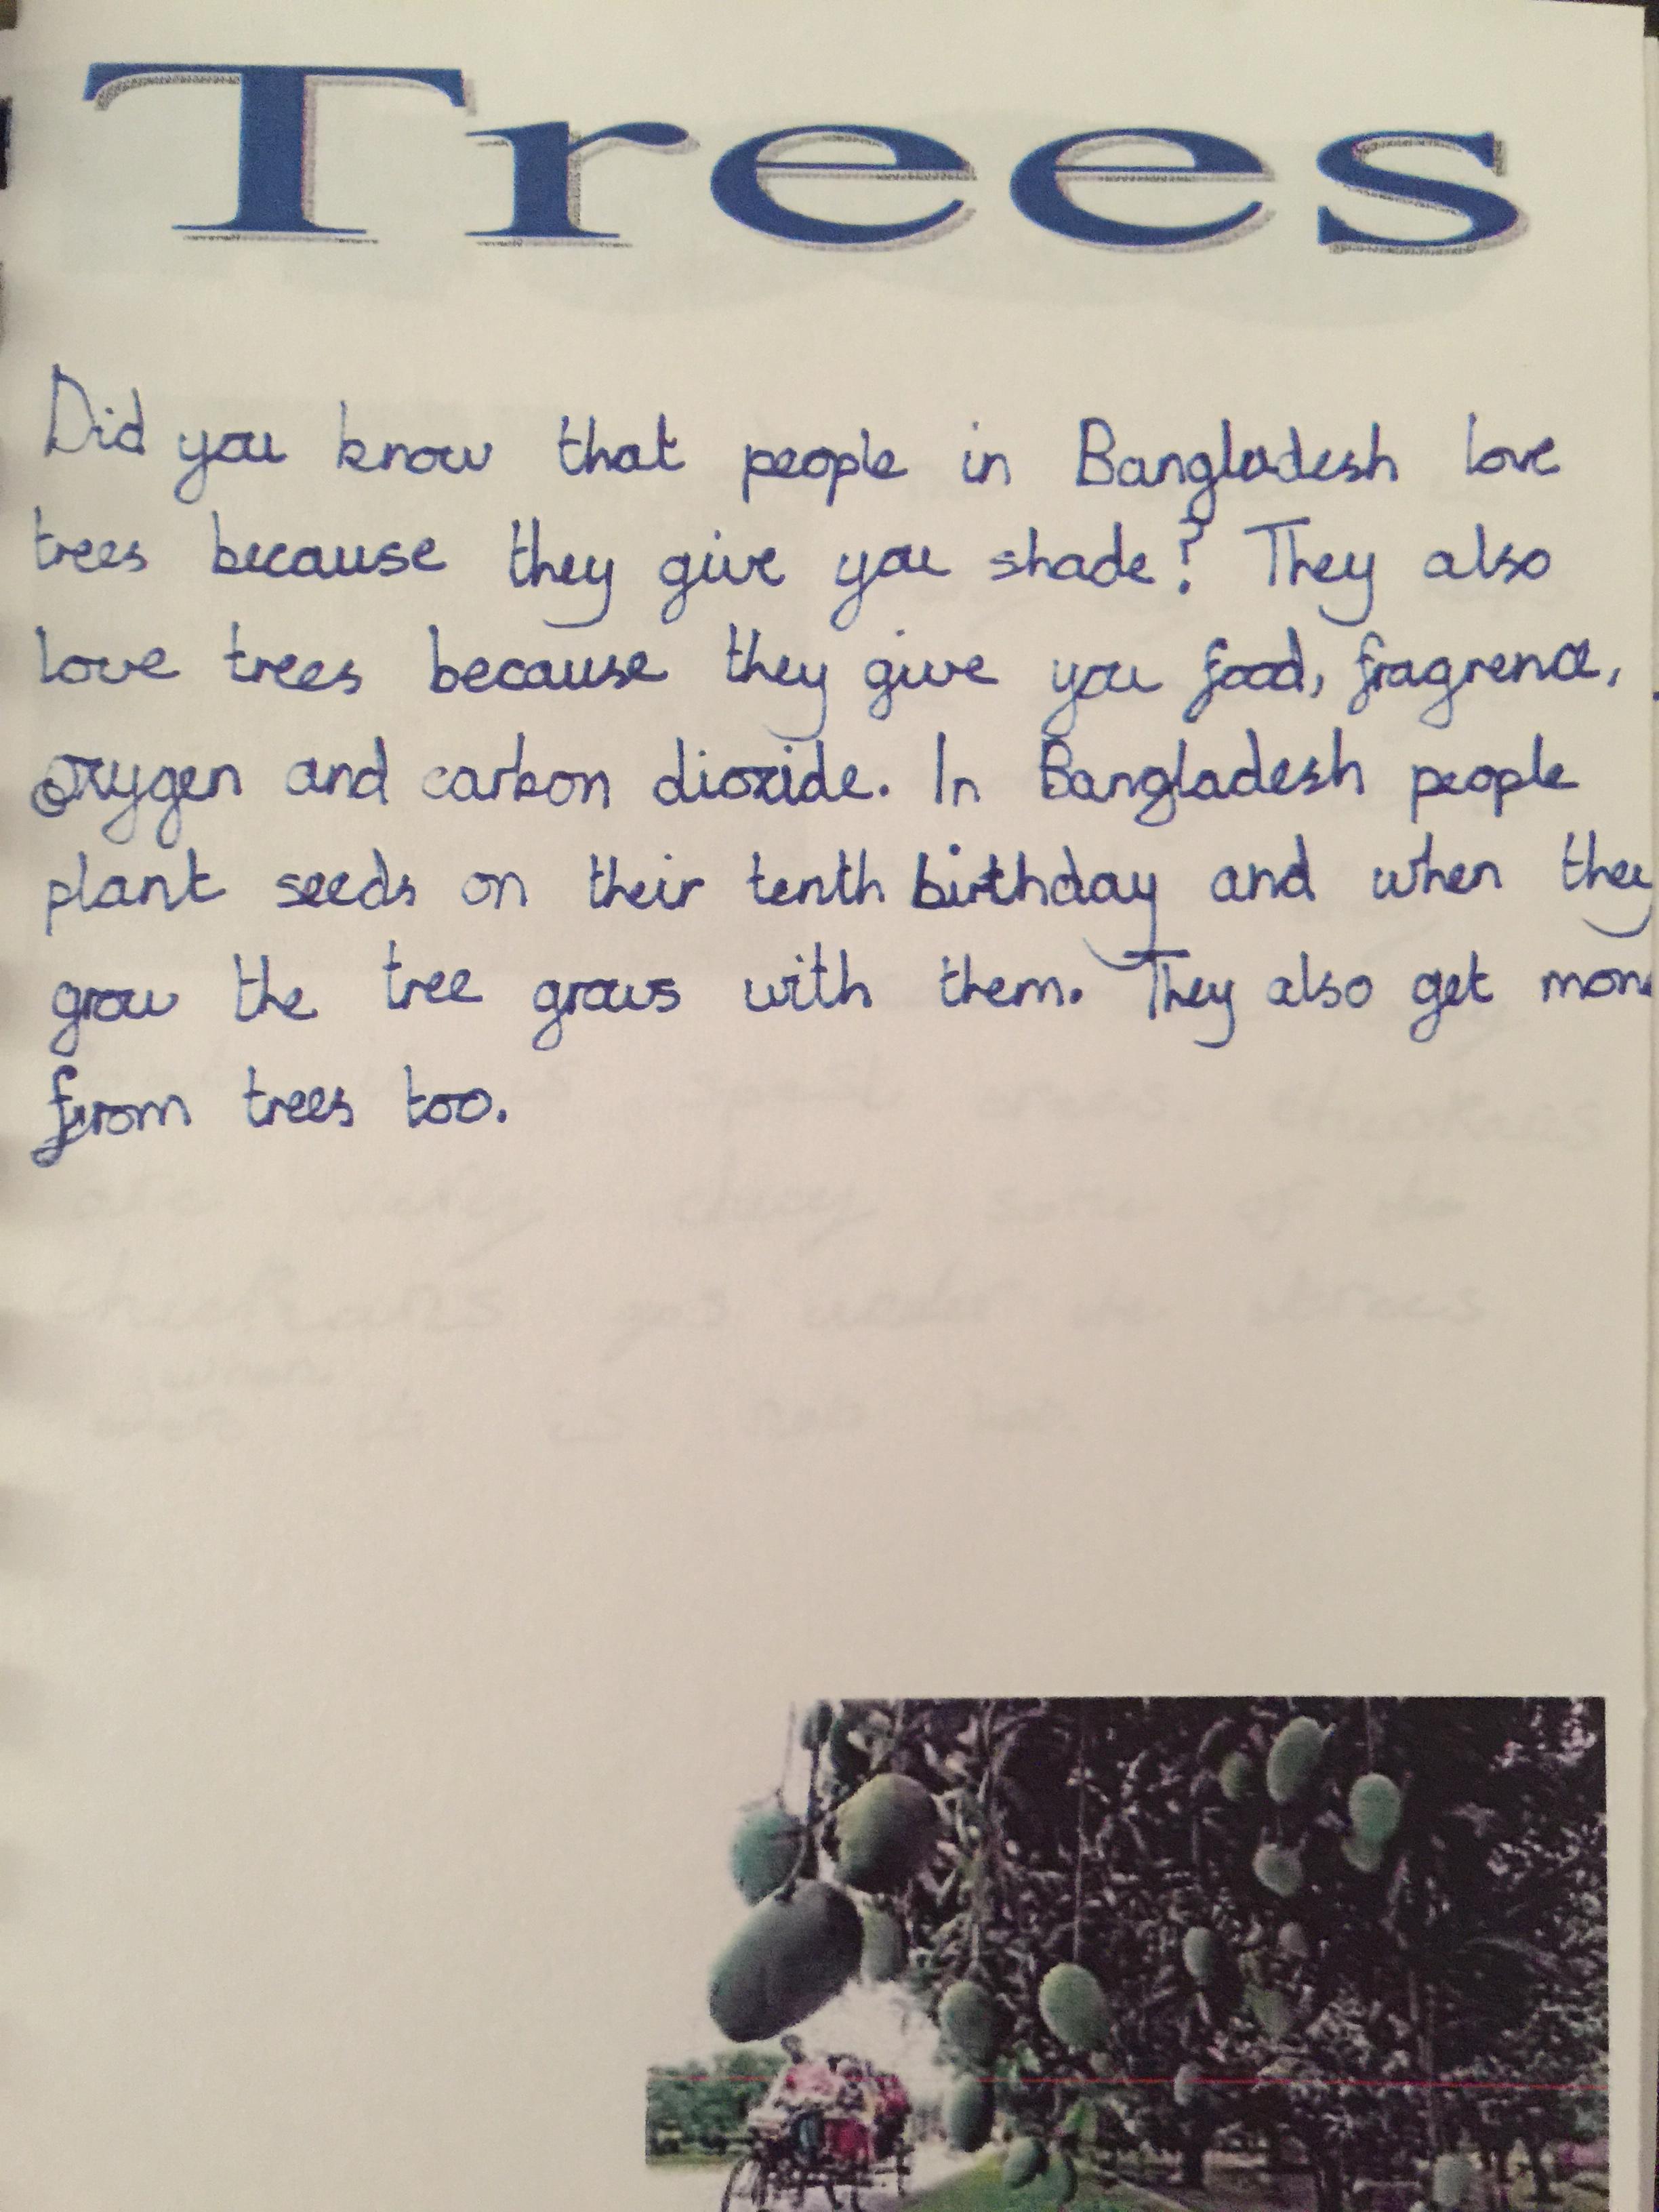 Trees
Did you know that people in Bangladesh love
trees because they give you shade? They also
love trees because they give you food, fragrence,
oxygen and carbon dioxide. In Bangladesh people
plant seeds on their tenth birthday and when they
grow the tree grows with them. They also get mon
from trees too.